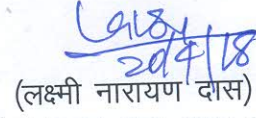 20/4/18
(लक्ष्मी नारायण दास)